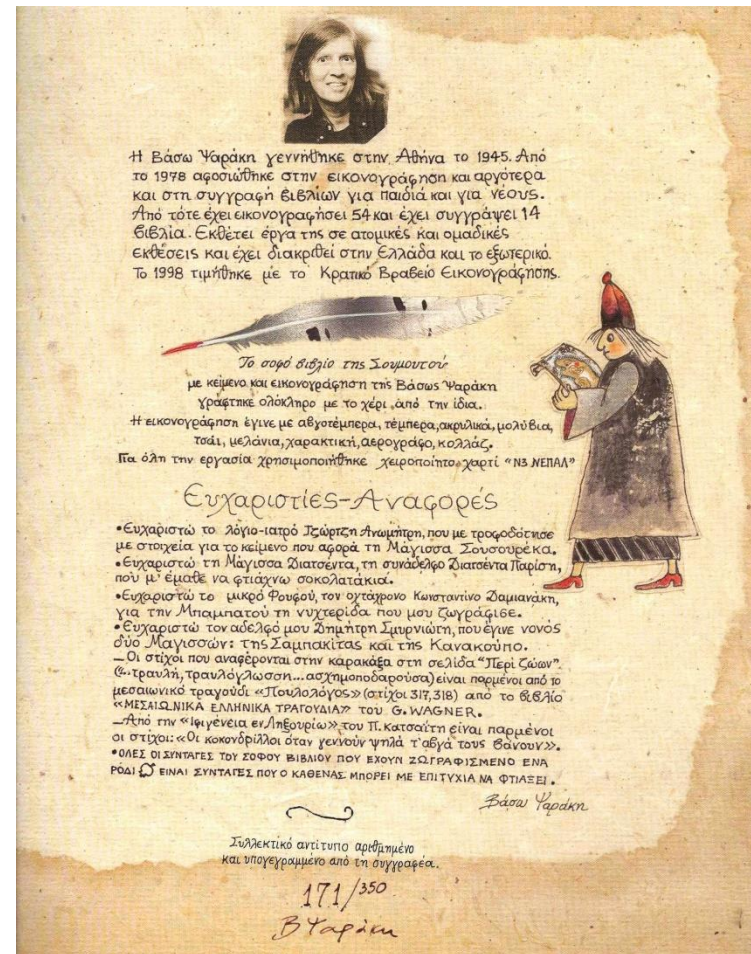 Η Βάσω Ψαράκη γεννήθηκε στην Αθήνα το 1945. Από
το 1978 αφοσιώθηκε στην εικονογράφηση και αργότερα
και στη συγγραφή βιβλίων για παιδιά και για νέους.
Από τότε έχει εικονογραφήσει 54 και έχει συγγράψει 14
βιβλία. Εκθέτει έργα της σε ατομικές και ομαδικές
εκθέσεις και έχει διακριθεί στην Ελλάδα και το εξωτερικό.
Το 1998 τιμήθηκε με το Κρατικό Βραβείο Εικονογράφησης.
Το σοφό βιβλίο της Σουμουτού
με κείμενο και εικονογράφηση της Βάσως Ψαράκη
γράφτηκε ολόκληρο με το χέρι, από την ίδια.
Η εικονογράφηση έγινε με αβγοτέμπερα, τέμπερα, ακρυλικά, μολύβια,
τσάι, μελάνια, χαρακτική, αερογράφο, κολλάζ.
Για όλη την εργασία χρησιμοποιήθηκε χειροποίητο χαρτί "Ν3 ΝΕΠΑΛ"
Ευχαριστίες-Αναφορές
•Ευχαριστώ το λόγιο-ιατρό Τζώρτζη Ανωμήτρη, που με τροφοδότησε
με στοιχεία για το κείμενο που αφορά τη Μάγισσα Σουσουρέκα.
•Ευχαριστώ τη Μάγισσα Διατσέντα, τη συνάδελφο Διατσέντα Παρίση,
που μ' έμαθε να φτιάχνω σοκολατάκια.
•Ευχαριστώ το μικρό Φουφού, τον οχτάχρονο Κωνσταντίνο Δαμιανάκη,
για την Μπαμπατού τη νυχτερίδα που μου ζωγράφισε.
•Ευχαριστώ τον αδελφό μου Δημήτρη Σμυρνιώτη, που έγινε νονός
δύο Μαγισσών: της Σαμπακίτας και της Κανακούπο.
—Οι στίχοι που αναφέρονται στην καρακάξα στη σελίδα "Περί ζώων"
(«...τραυλή, τραυλόγλωσση... ασχημοποδαρούσα) είναι παρμένοι από το
μεσαιωνικό τραγούδι «Πουλολόγος» (στίχοι 317,318) από το βιβλίο
«ΜΕΣΑΙΩΝΙΚΑ ΕΛΛΗΝΙΚΑ ΤΡΑΓΟΥΔΙΑ» του G. WAGNER.
—Από την «Ιφιγένεια εν Ληξουρίω» του Π. Κατσαΐτη είναι παρμένοι
οι στίχοι: «Οι κοκονδρίλλοι όταν γεννούν ψηλά τ' αβγά τους βάνουν».
•ΟΛΕΣ ΟΙ ΣΥΝΤΑΓΕΣ ΤΟΥ ΣΟΦΟΥ ΒΙΒΛΙΟΥ ΠΟΥ ΕΧΟΥΝ ΖΩΓΡΑΦΙΣΜΕΝΟ ΕΝΑ
ΡΟΔΙ ΕΙΝΑΙ ΣΥΝΤΑΓΕΣ ΠΟΥ Ο ΚΑΘΕΝΑΣ ΜΠΟΡΕΙ ΜΕ ΕΠΙΤΥΧΙΑ ΝΑ ΦΤΙΑΞΕΙ.
Βάσω Ψαράκη
Συλλεκτικό αντίτυπο αριθμημένο
και υπογεγραμμένο από τη συγγραφέα.
171/350
Β Ψαράκη